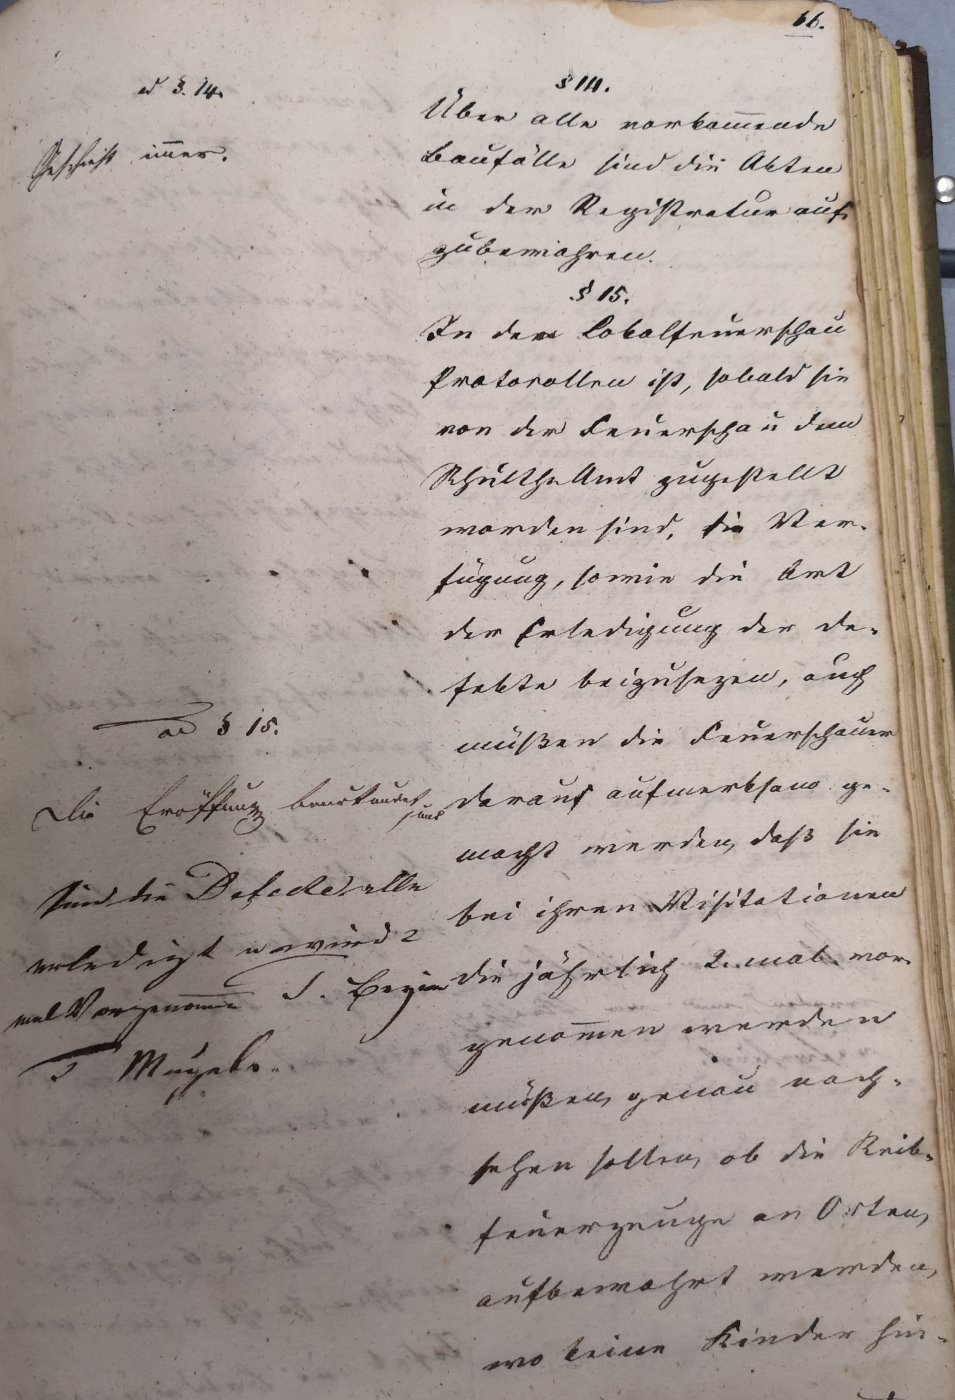 66.
ad §. 14.
Geschieht immer.
§ 14.
Über alle vorkom̅ende
Baufälle sind die Akten
in der Registratur auf-
zubewahren.
§ 15.
In den Lokalfeuerschau
Protocollen ist, sobald sie
von der Feuerschau dem
Schulth. Amt zugestellt
worden sind, die Ver-
fügung, sowie die Art
der Erledigung der De-
fekte beizusezen, auch
müßen die Feuerschauer
darauf aufmerksam ge-
macht werden, daß sie
bei ihren Visitationen
die jährlich 2. mal vor-
genom̅en werden
müßen, genau nach-
sehen sollen, ob die Reib-
feuerzeuge an Orten,
aufbewahrt werden,
wo keine Kinder hin-
ad § 15.
Die Eröffnung beurkundet
sind die Defecte alle
erledigt u. wird 2
mal Vorgenom̅en
T